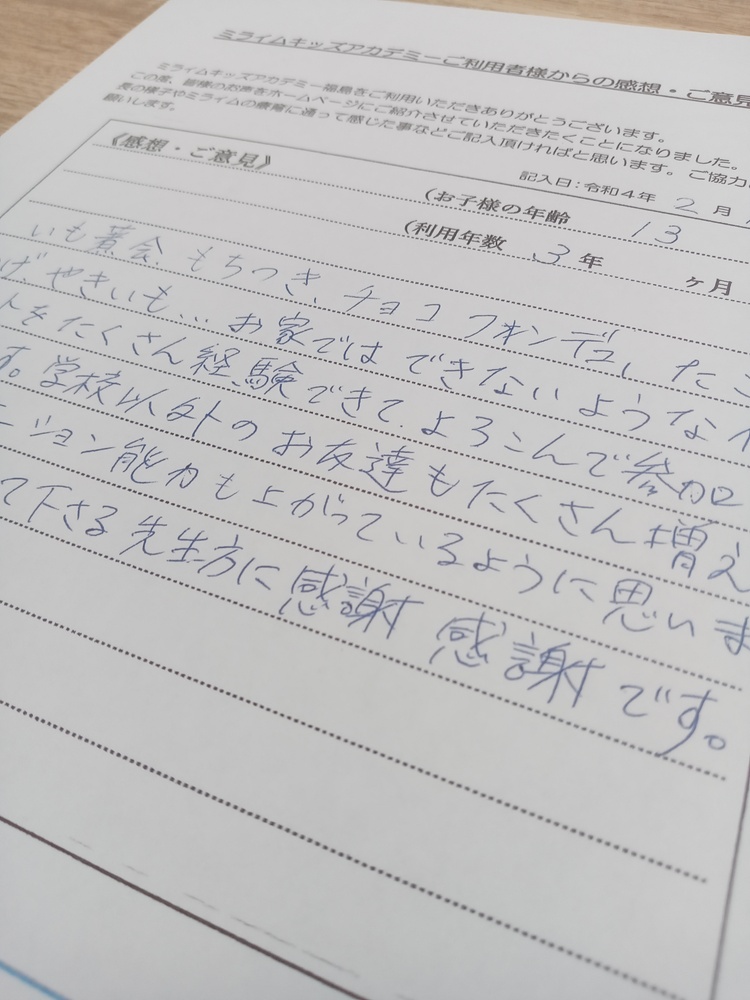 ミライムキッズアカデミーご利用者様からの感想・ご意見
ミライムキッズアカデミー福島をご利用いただきありがとうございます。
この度、皆様のお声をホームページにご紹介させていただきたくことになりました。
長の様子やミライムの療育に通って感じた事などご記入頂ければと思います。ご協力
願いします。
記入日:令和4年 2 月
《感想・ご意見》
(お子様の年齢 13
(利用年数 3 年 ヶ月
いも煮会、もちつき、チョコフォンデュ、たこ
げやきいも… お家ではできないような
トをたくさん経験できて、よろこんで参加
す。学校以外のお友達もたくさん増え
ニュション能力も上がっているように思いま
て下さる先生方に感謝 感謝です。